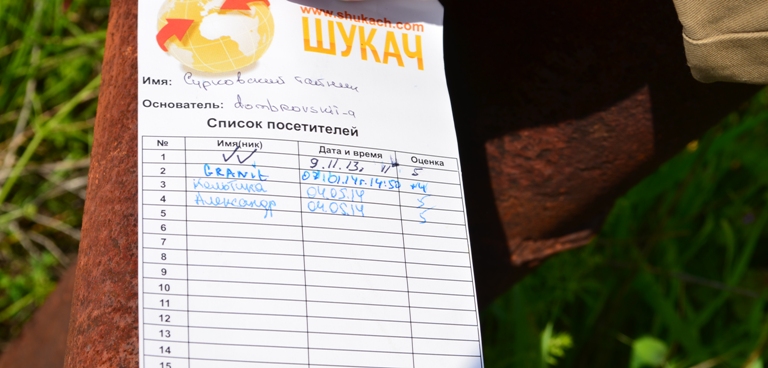 www.shukach.com
ШУКАЧ
Имя: Сурковский тайник
Основатель: dombrovskii-a
Список посетителей
№ Имя(ник) Дата и время Оценка
1 9.11.13, 5
2 GRANit 07.01.14г. 14:50 +4
3 Кельтика 04.05.14 5
4 Александр 04.05.14 5
5
6
7
8
9
10
11
12
13
14
15